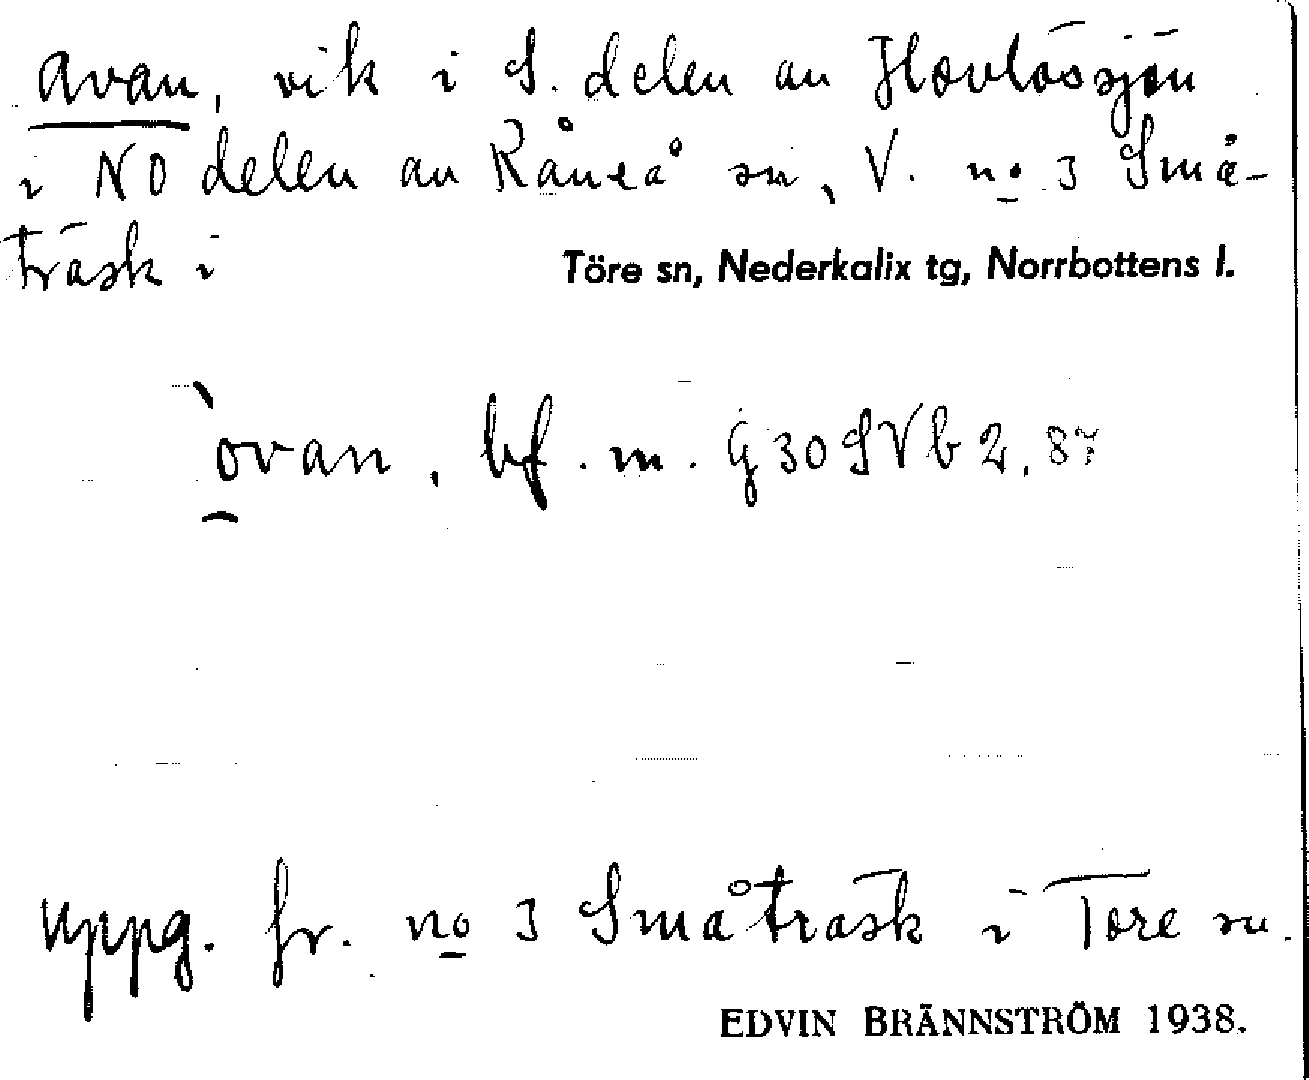 Avan, vik i S. delen av Hovlössjön
i NO delen av Råneå sn, V. no 3 Små-
träsk i
Töre sn, Nederkalix tg, Norrbottens l.
ovan, bf. m. G 30 SVb 2, 87
uppg. fr. no 3 Småträsk i Töre sn.
EDVIN BRÄNNSTRÖM 1938.